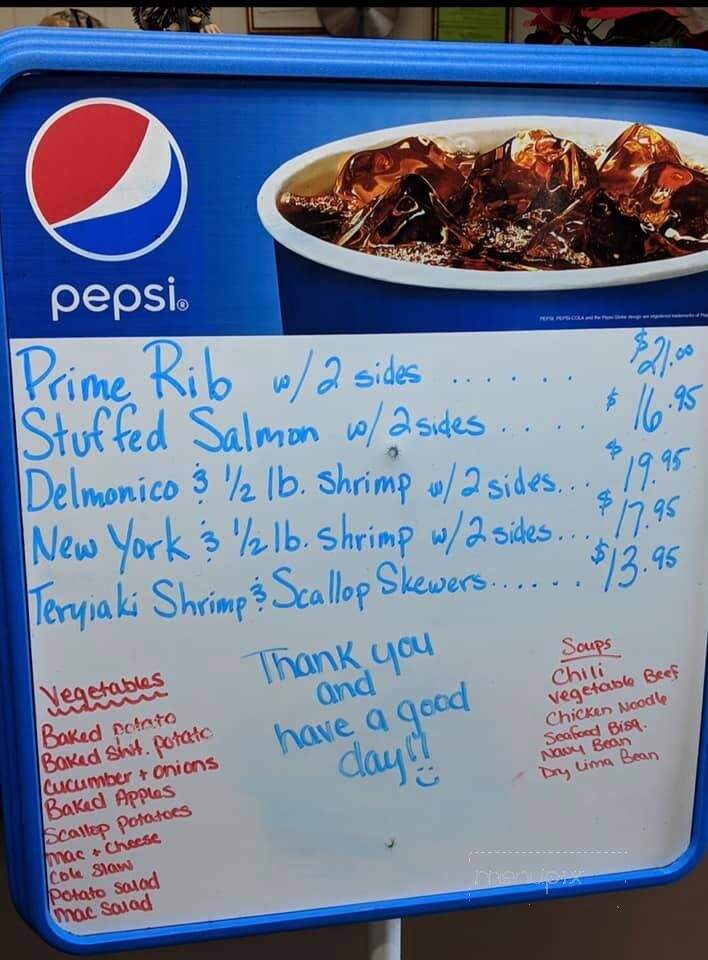 pepsi®
Prime Rib w/2 sides ...... $21.00
Stuffed Salmon w/2 sides ..... $16.95
Delmonico & 1/2 lb. shrimp w/2 sides... $19.95
New York & 1/2 lb. shrimp w/2 sides... $17.95
Teryiaki Shrimp & Scallop Skewers...... $13.95
Thank you
and
have a good
day!!
Vegetables
Baked potato
Baked swt. potato
Cucumber + onions
Baked Apples
Scallop Potatoes
mac + cheese
Cole Slaw
Potato salad
mac salad
Soups
Chili
Vegetable Beef
Chicken Noodle
Seafood Bisq.
Navy Bean
Dry Lima Bean
menupix